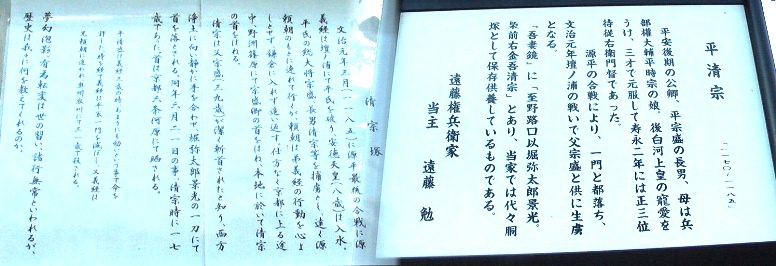 平清宗
一一七〇〜一一八五
平安後期の公卿、平宗盛の長男、母は兵
部権大輔平時宗の娘、後白河上皇の寵愛を
うけ、三才で元服して寿永二年には正三位
侍従右衛門督であった。
源平の合戦により、一門と都落ち、
文治元年壇ノ浦の戦いで父宗盛と供に生虜
となる。
「吾妻鏡」に「至野路口以堀弥太郎景光。
梟前右金吾清宗」とあり、当家では代々胴
塚として保存供養しているものである。
遠藤権兵衛家
当主 遠藤勉
清宗塚
文治元年三月(一一八五)に源平最後の合戦に源
義経は壇ノ浦にて平氏を破り、安徳天皇(八歳)は入水、
平氏の総大将宗盛、長男清宗等を捕虜とし、遠く源
頼朝のもとに連れて行くが、頼朝は弟義経の行動を心よ
しとせず、鎌倉に入れず追い返す。仕方なく京都に上る途
中、野洲篠原にて宗盛卿の首をはね、本地に於いて清宗
の首をはねる。
清宗は父宗盛(三九歳)が潔く斬首されたと知り、西方
浄土に向い静かに手を合わせ、堀弥太郎景光の一刀にて
首を落とされる。同年六月二一日の事、清宗時に一七
歳であった。首は京都六条河原にて晒される。
平清盛は義経三歳の時あまりにも幼いという事で命を
許した時が経て義経に平家一門を滅ぼし、又義経は
兄頼朝に追われ奥州衣川にて三一歳で殺される。
夢幻泡影、有為転変は世の習い、諸行無常といわれるが、
歴史は我々に何を教えてくれるのか。